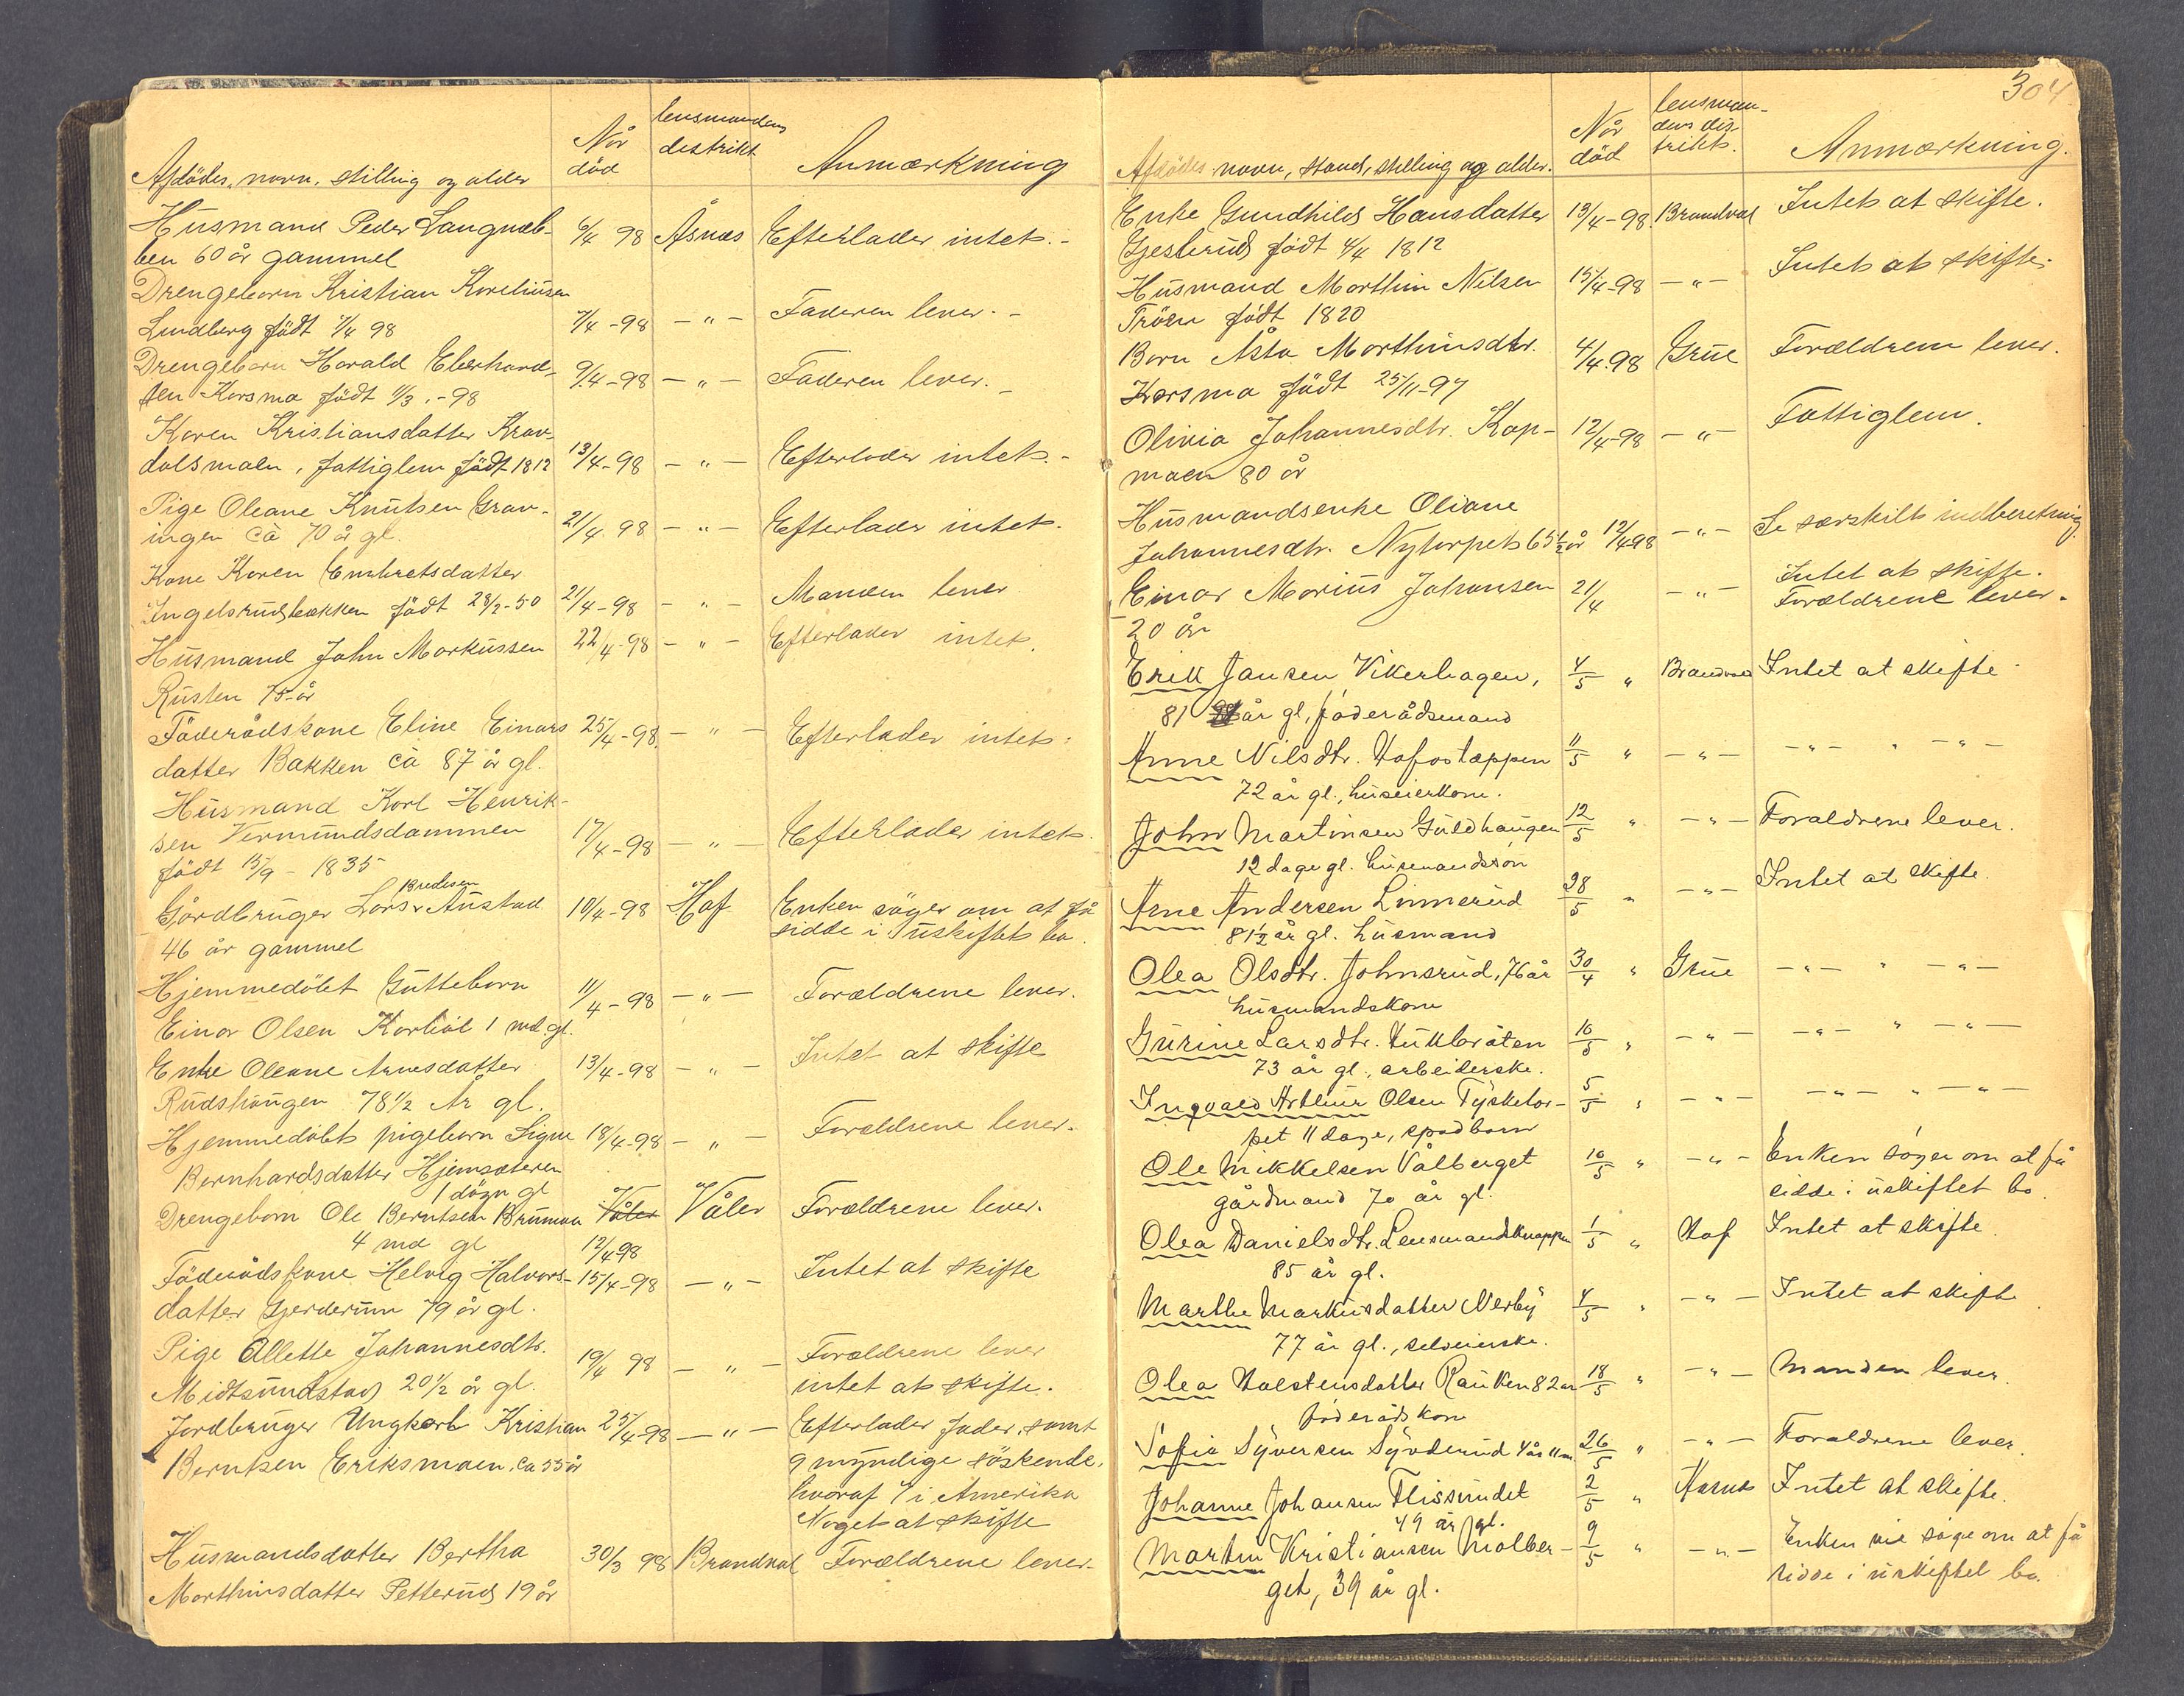 Afdödes, navn, stilling og alder Når död lensmandens distrikt Anmærkning
Husmand Peder Langnæb- 6/4 98 Åsnæs Efterlader intet.-
ben 60 år gammel
Drengebarn Kristian Kareliusen
Lindberg födt 1/4 98 7/4-98 -"- Faderen lever.-
Drengebarn Harald Eberhard- 9/4-98 -"- Faderen lever.-
sen Korsmo födt 11/3.-98
Karen Kristiansdatter Krav-
dalsmoen, fattiglem födt 1812 13/4-98 -"- Efterlader intet.-
Pige Oleane Knutsen Grav- 21/4.98 -"- Efterlader intet.
ingen Cà 70 år gl.
Kone Karen Embretsdatter
Ingelsrudsbækken födt 28/2-50 21/4-98 -"- Manden lever
Husmand John Markussen 22/4-98 -"- Efterlader intet.
Rusten 75 år
Föderådskone Eline Einars 25/4-98. -"- Efterlader intet.
datter Bakken Cà 87 år gl.
Husmand Karl Henrik-
sen Vermundsdammen 17/4-98 -"- Efterlader intet.
födt 15/9 - 1835
Bredesen
Gårdbruger Lars Austad 10/4-98 Hof Enken söger om at få
46 år gammel sidde i uskiftet bo.
Hjemmedöbt Guttebarn 11/4-98 -"- Forældrene lever.
Einar Olsen Korböl 1 md. gl.
Enke Oleane Arnesdatter 13/4-98 -"- Intet at skifte
Rudshaugen 78 1/2 År gl.
Hjemmedöbt pigebarn Signe 18/4-98 -"- Forældrene lever.
Bernhardsdatter Hjemsæteren
1 dögn gl
Drengebarn Ole Berntsen Brumoen Våler Våler Forældrene lever.
4 md gl 12/4 98
Föderådskone Helvig Halvors- 15/4-98 -"- Intet at skifte
datter Gjerderum 79 år gl.
Pige Allette Johannesdtr. 19/4 98 -"- Forældrene lever
Midtsundstad 20 1/2 år gl. intet at skifte.
Jordbruger Ungkarl Kristian 25/4-98 -"- Efterlader fader, samt
Berntsen Eriksmoen, Ca 55 år 9 myndige söskende,
hvoraf 7 i Amerika
Noget at skifte
Husmandsdatter Bertha 30/3 98 Brandval Forældrene lever.
Marthinsdatter Petterud 19 år
304
Afdödes navn, stand, stilling og alder. Når död lensman- dens dis- trikt. Anmærkning.
Enke Gundhild Hansdatter 13/4-98. Brandval Intet at skifte.
Gjesterud födt 4/4 1812
Husmand Marthin Nilsen 15/4-98 -"- Intet at skifte.
Tröen födt 1820
Barn Åsta Marthinsdtr. 4/4.98 Grue Forældrene lever.
Korsmo födt 25/11-97
Olivia Johannesdtr. Kop- 12/4-98 -"- Fattiglem.
moen 80 år
Husmandsenke Oliane
Johannesdtr. Nytorpet 65 1/2 år 12/4-98 -"- Se særskilt indberetning.
Einar Marius Johansen 21/4 -"- Intet at skifte.
20 år Forældrene lever.
Erik Jansen Vikerhagen, 4/5 " Brandval Intet at skifte.
81 år gl, föderådsmand
Anne Nilsdtr. Hofoslæppen 11/5 " -"- -"- " -"-
72 år gl., huseierkone.
John Martinsen Guldhaugen 12/5 " -"- Forældrene lever.
12 dage gl. husmandssön
Arne Andersen Linnerud 28/5 " -"- Intet at skifte.
81 1/2 år gl. husmand
Olea Olsdtr. Johnsrud, 76 år 30/4 " Grue -"- " -"-
husmandskone
Gurine Larsdtr. Kuklbråten 10/5 " -"- -"- " -"-
73 år gl., arbeiderske.
Ingvald Arthur Olsen Tysketor- 5/5 " -"- -"- " -"-
pet 11 dage, spædbarn
Ole Mikkelsen Vålberget 10/5 " -"- Enken söger om at få
gårdmand 70 år gl. sidde i uskiftet bo.
Olea Danielsdtr. Lensmandsknappen 1/5 " Hof Intet at skifte.
85 år gl.
Marthe Markusdatter Nerby 4/5 " -"- Intet at skifte
77 år gl., selveierske.
Olea Halstensdatter Rauken 82 år 18/5 " -"- Manden lever.
föderådskone
Sofie Syversen Syvderud 4 år 11 m. 26/5 " -"- Forældrene lever.
Johanne Johansen Flissundet 2/5 " Aasnæs Intet at skifte.
49 år gl.
Martin Kristiansen Molber- 9/5 " -"- Enken vil söge om at få
get, 39 år gl. sidde i uskiftet bo.